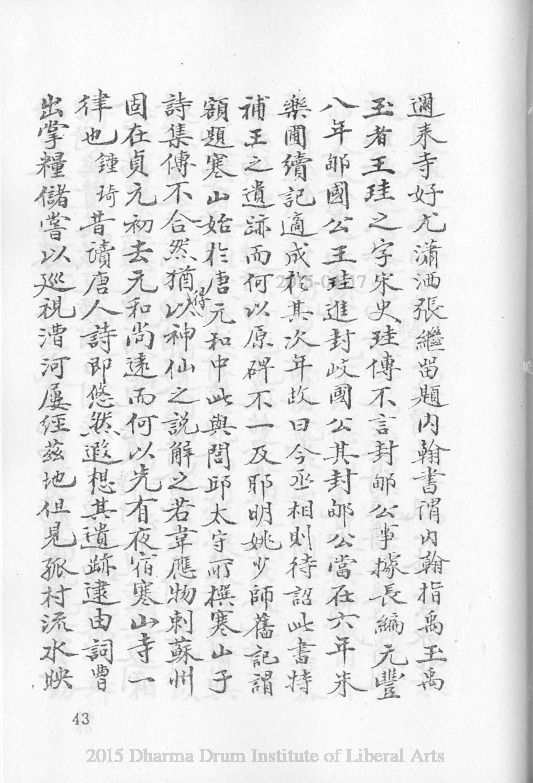 邇来寺好尤瀟洒張繼留題内翰書謂内翰指禹玉禹
玉者王珪之字宋史珪傳不言封郇公事據長編元豐
八年郇國公王珪進封岐國公其封郇公當在六年朱
樂圃續記適成於其次年故曰今丞相則待詔此書特
補王之遺跡而何以原碑不一及耶明姚少師舊記謂
額題寒山始於唐元和中此與閭邱太守所撰寒山子
詩集傳不合然猶得以神仙之説解之若韋應物刺蘇州
固在貞元初去元和尚遠而何以先有夜宿寒山寺一
律也鍾琦昔讀唐人詩即悠然遐想其遺跡逮由詞曹
出掌糧儲嘗以巡視漕河屢經茲地但見孤村流水映
43
2015 Dharma Drum Institute of Liberal Arts